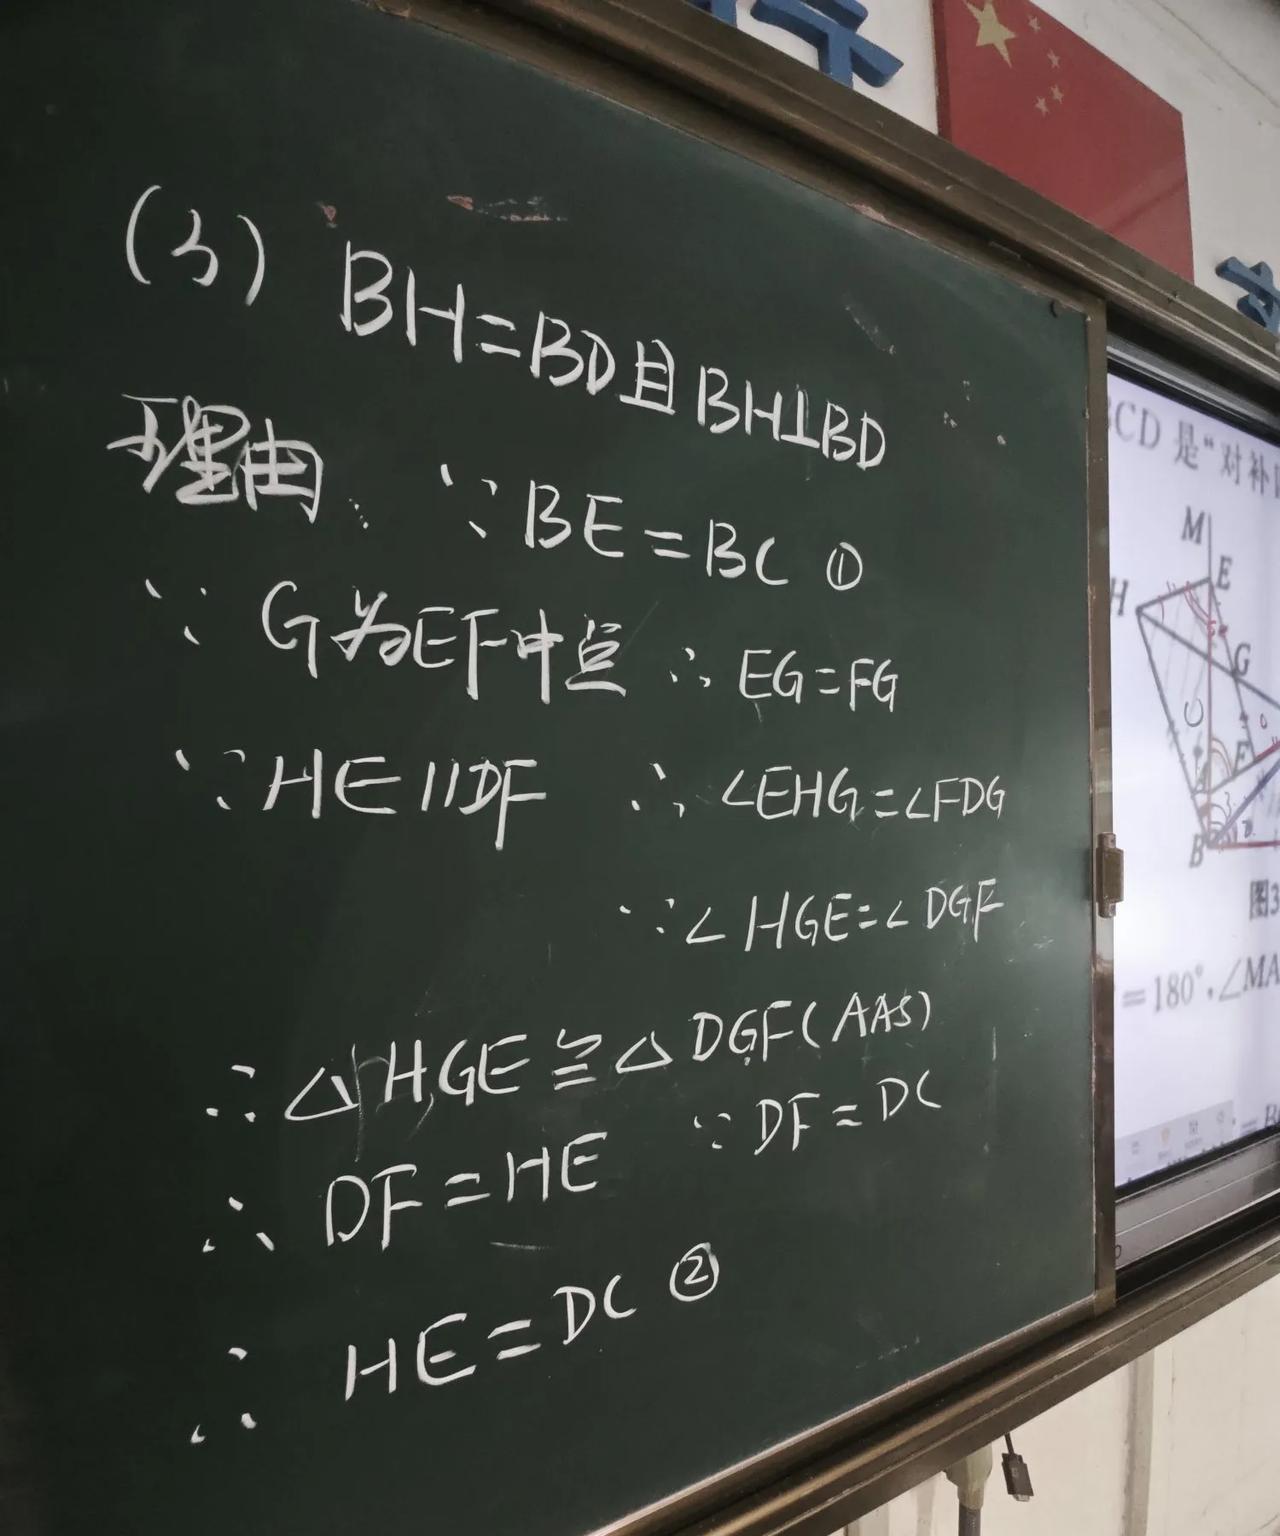 (3) BH=BD且BH⊥BD
理由: ∵BE=BC ①
∵ G为EF中点 ∴ EG=FG
∵HE//DF ∴ ∠EHG=∠FDG
∵∠HGE=∠DGF
∴△HGE≌△DGF(AAS)
∴ DF=HE ∵DF=DC
∴ HE=DC ②
BCD 是“对补
M
E
H
G
C
F
B
图3
=180°,∠MA